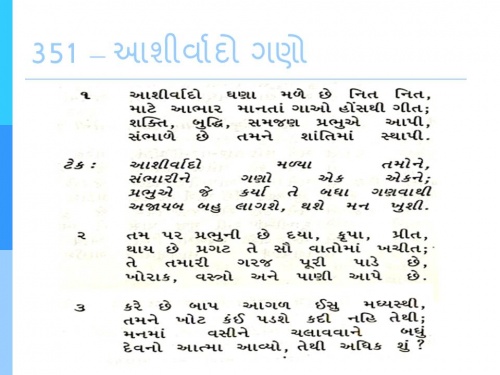 351 – આશીર્વાદો ગણો
૧ આશીર્વાદો ઘણા મળે છે નિત નિત,
માટે આભાર માનતાં ગાઓ હોંસથી ગીત;
શક્તિ, બુદ્ધિ, સમજણ પ્રભુએ આપી,
સંભાળે છે તમને શાંતિમાં સ્થાપી.
ટેક : આશીર્વાદો મળ્યા તમોને,
સંભારીને ગણો એક એકને;
પ્રભુએ જે કર્યા તે બધા ગણવાથી
અજાયબ બહુ લાગશે, થશે મન ખુશી.
૨ તમ પર પ્રભુની છે દયા, કૃપા, પ્રીત,
થાય છે પ્રગટ તે સૌ વાતોમાં ખચીત;
તે તમારી ગરજ પૂરી પાડે છે,
ખોરાક, વસ્ત્રો અને પાણી આપે છે.
૩ કરે છે બાપ આગળ ઈસુ મધ્યસ્થી,
તમને ખોટ કંઈ પડશે કદી નહિ તેથી;
મનમાં વસીને ચલાવવાને બધું
દેવનો આત્મા આવ્યો, તેથી અધિક શું ?